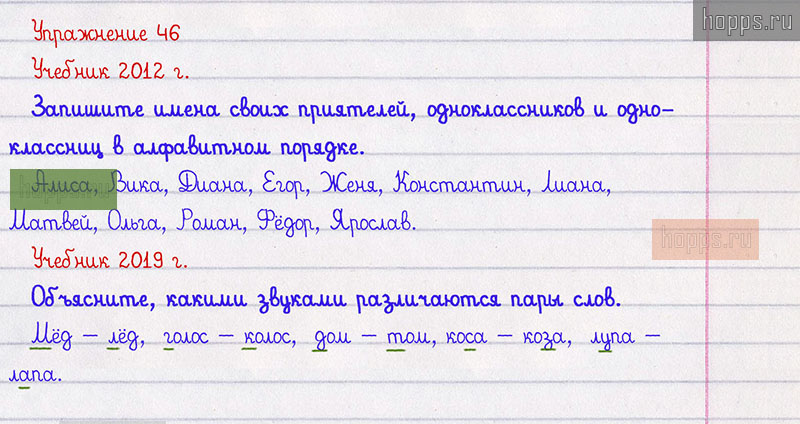 hopps.ru
Упражнение 46
Учебник 2012 г.
Запишите имена своих приятелей, одноклассников и одно-
классниц в алфавитном порядке.
Алиса, Вика, Диана, Егор, Женя, Константин, Лиана,
Матвей, Ольга, Роман, Фёдор, Ярослав.
hopps.ru
Учебник 2019 г.
Объясните, какими звуками различаются пары слов.
Мёд – лёд, голос – колос, дом – том, коса – коза, лупа –
лапа.